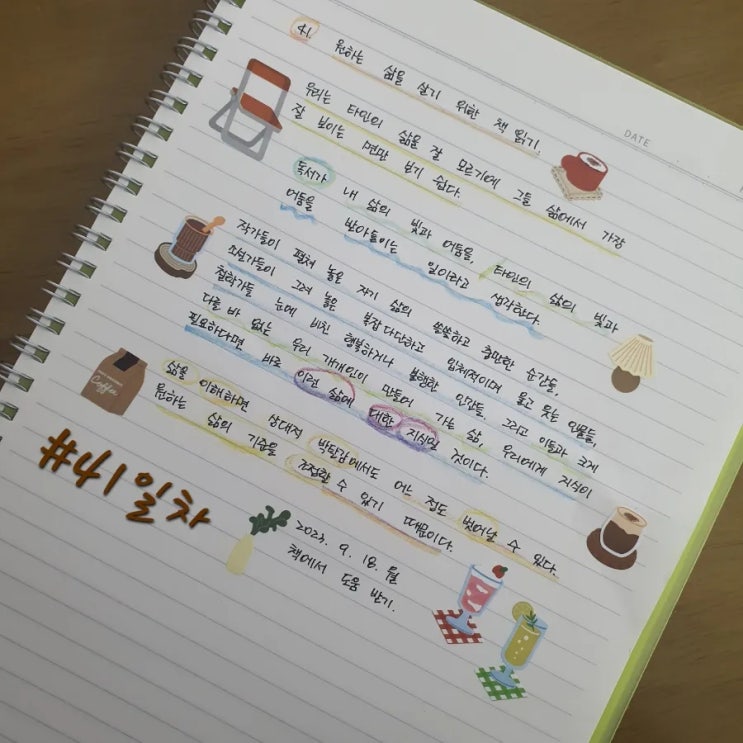 41.
원하는 삶을 살기 위한 책 읽기.
DATE
우리는 타인의 삶을 잘 모르기에 그들 삶에서 가장
잘 보이는 면만 보기 쉽다.
독서가 내 삶의 빛과 어둠을, 타인의 삶의 빛과
어둠을 받아들이는 일이라고 생각한다.
작가들이 펼쳐 놓은 자기 삶의 쓸쓸하고 충만한 순간들,
소설가들이 그려 놓은 복잡다단하고 입체적이며 울고 웃는 인물들,
철학가들 눈에 비친 행복하거나 불행한 인간들, 그리고 이들과 크게
다를 바 없는 우리 개개인이 만들어 가는 삶, 우리에게 지식이
필요하다면 바로 이런 삶에 대한 지식일 것이다.
삶을 이해하면 상대적 박탈감에서도 어느 정도 벗어날 수 있다.
원하는 삶의 기준을 조정할 수 있기 때문이다.
Coffee
#41일차
2023. 9. 18. 월
책에서 도움 받기.